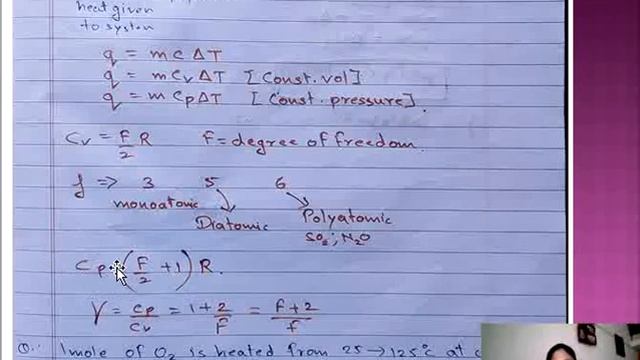 heat given
to system
q = mcΔT
q = mCvΔT [Const. vol]
q = mCpΔT [Const. pressure].
Cv = F/2 R f = degree of freedom.
f => 3 5 6
monoatomic
Diatomic
Polyatomic
SO2; N2O
Cp = (F/2 + 1) R.
γ = Cp/Cv = 1 + 2/F = F+2/f
1 mole of O2 is heated from 25 → 125°C at